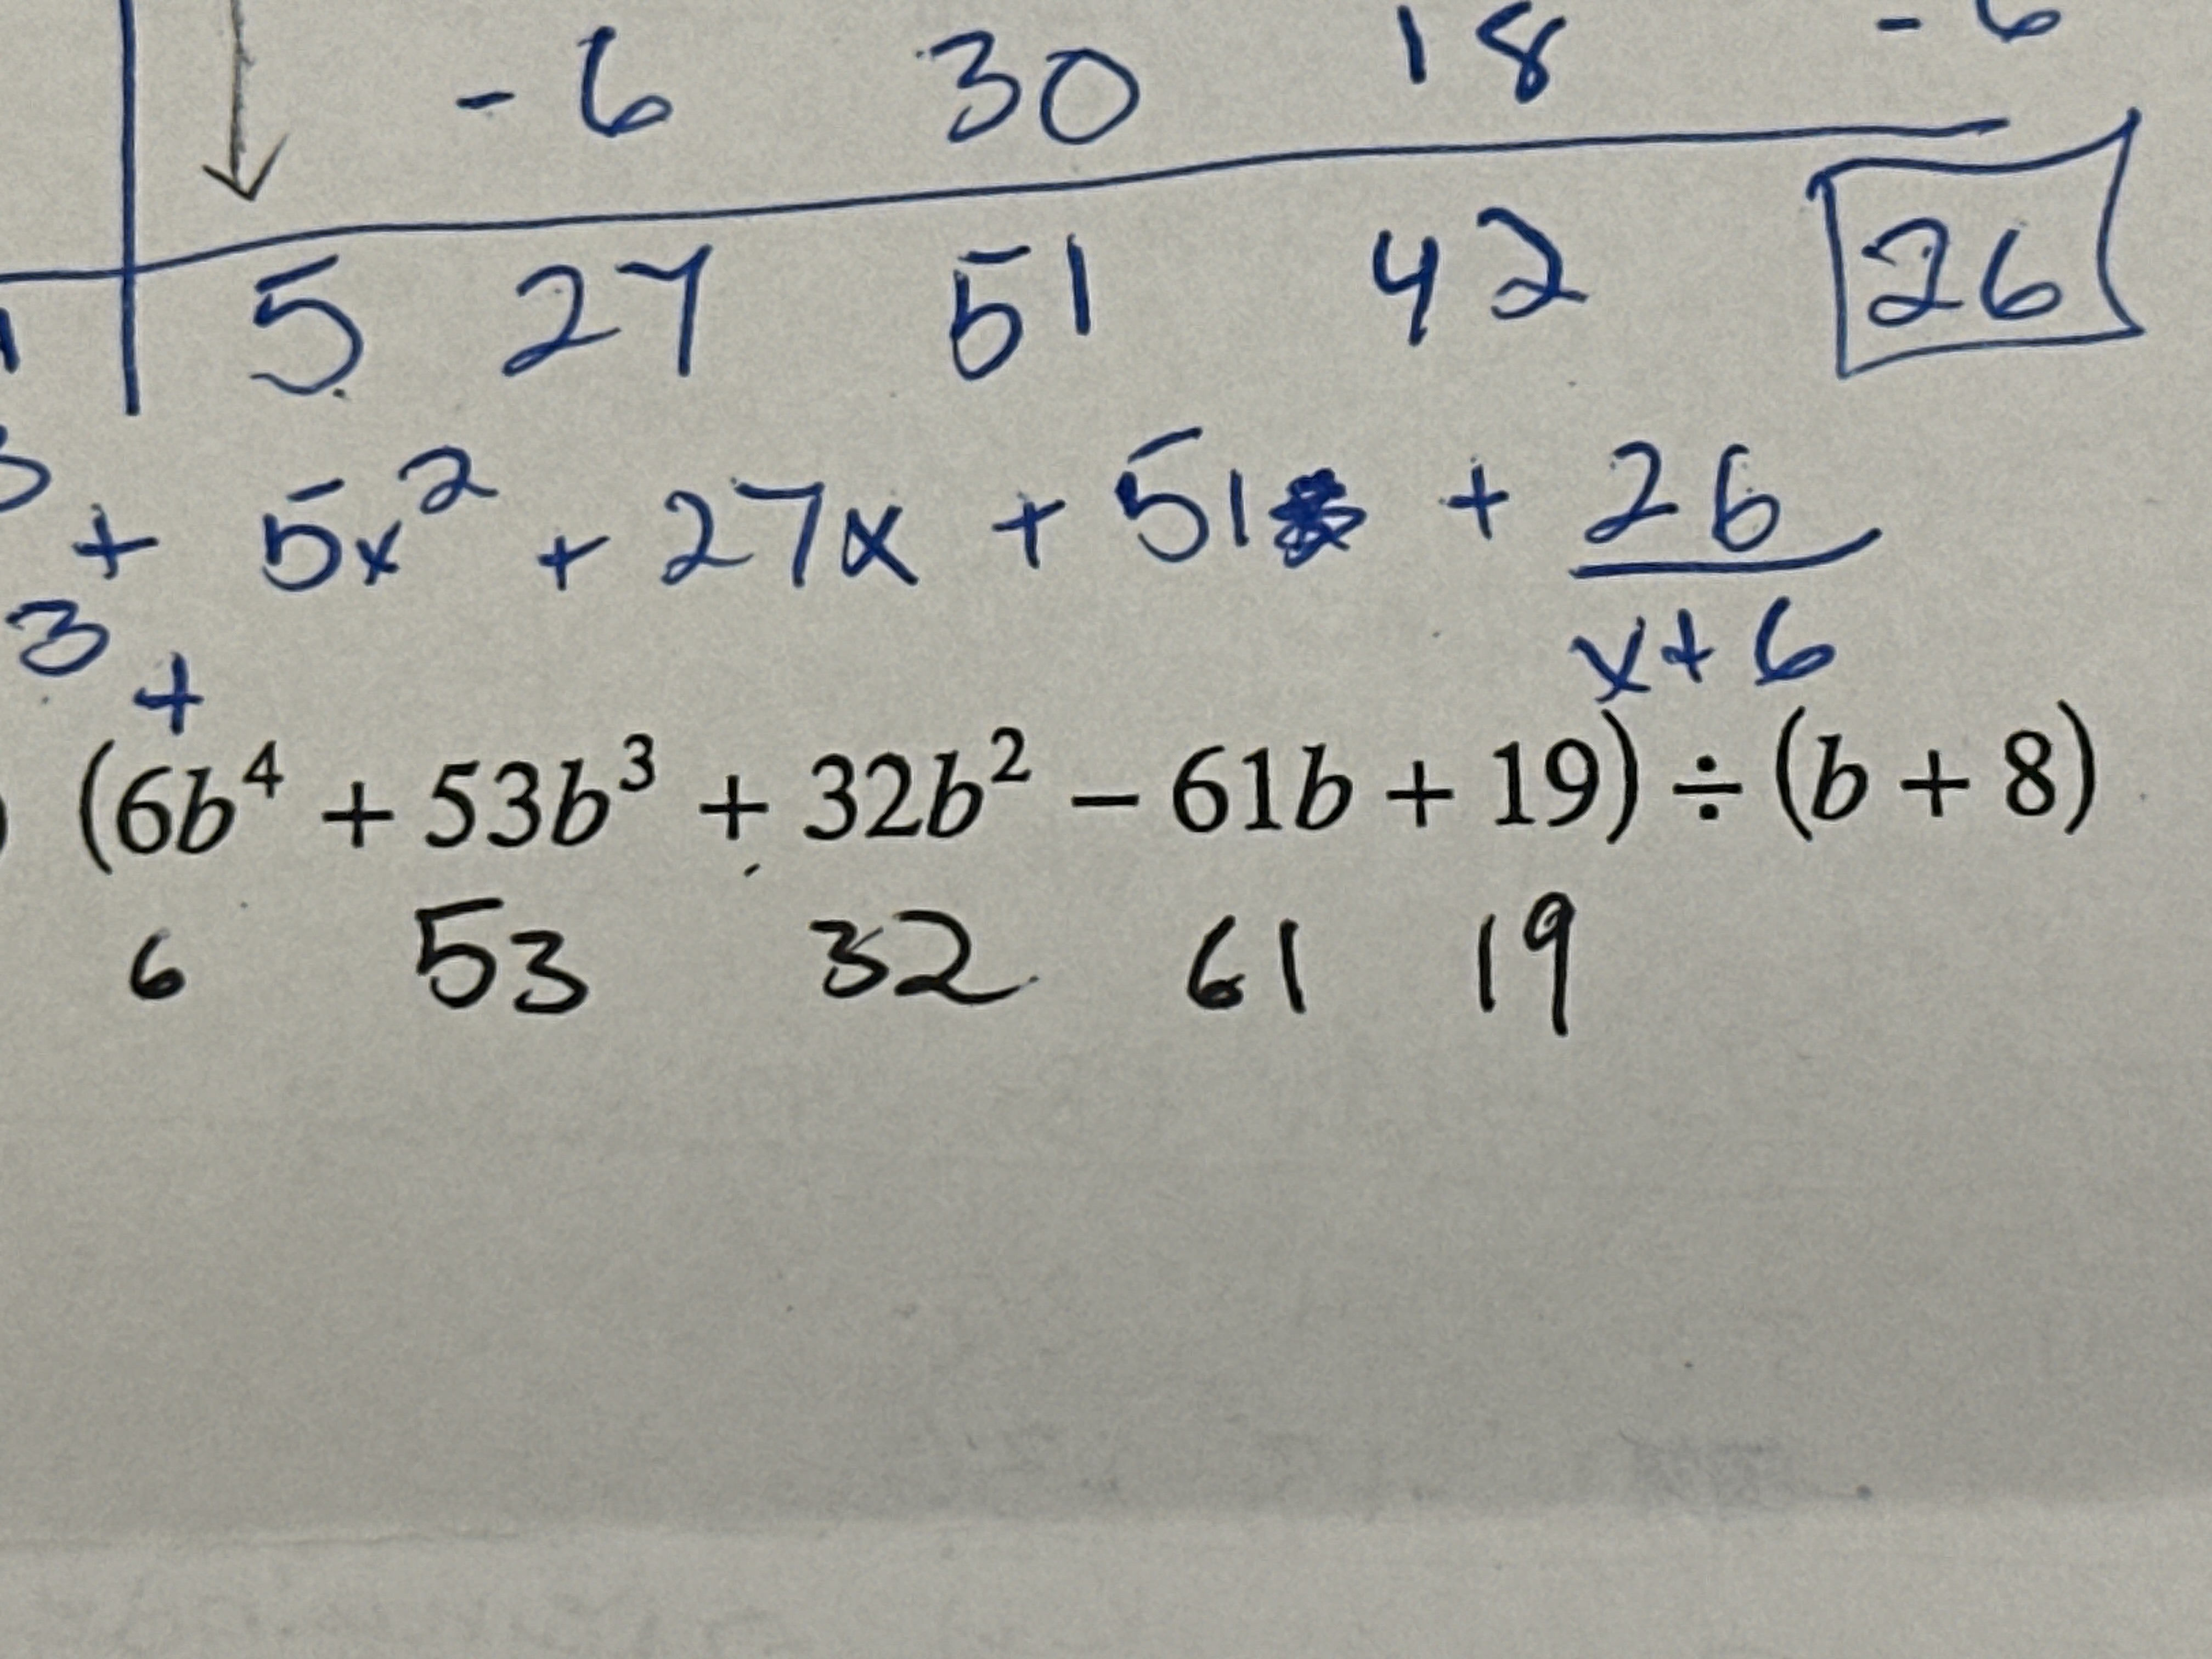 - 6 30 18 - 6
5 27 51 42 26
3 + 5x² + 27x + 51 + 26
x + 6
3 +
(6b⁴ + 53b³ + 32b² − 61b + 19) ÷ (b + 8)
6 53 32 61 19